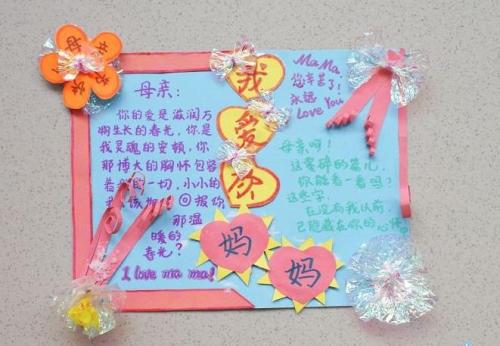 母亲
节快乐
母亲：
你的爱是滋润万
物生长的春光，你是
我灵魂的安顿，你
那博大的胸怀包容
着的一切，小小的
我该
回报你
那温
暖的
春光？
I love ma ma!
我
爱
你
妈
妈
MaMa
您辛苦了！
永远
Love You
母亲啊！
这零碎的篇儿，
你能看一看吗？
这些字，
在没有我以前，
已隐藏在你的心怀